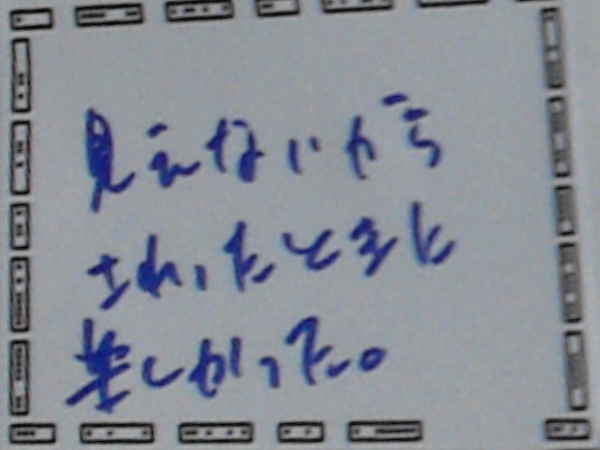 見えないから
さわったときに
楽しかった。